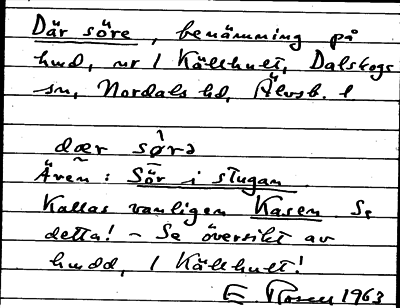 Där söre, benämning på
hmd, nr 1 Källhult, Dalskogs
sn, Nordals hd, Älvsb. l
dær sø̀rə
Även: Sör i stugan
Kallas vanligen Kasen Se
detta! - Se översikt av
hmdd, 1 Källhult!
E Rosen 1963